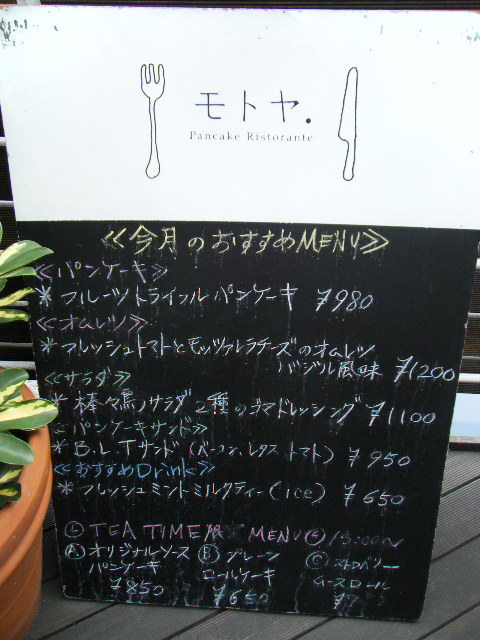 モトヤ.
Pancake Ristorante
≪今月のおすすめMENU≫
≪パンケーキ≫
* フルーツトライフルパンケーキ ¥980
≪オムレツ≫
* フレッシュトマトとモッツァレラチーズのオムレツ
バジル風味 ¥1200
≪サラダ≫
* 棒々鳥サラダ 2種のゴマドレッシング ¥1100
≪パンケーキサンド≫
* B.L.Tサンド(ベーコン、レタス トマト) ¥950
≪おすすめDrink≫
* フレッシュミントミルクティー(ice) ¥650
TEA TIME限 MENU 15:00~
Ⓐ オリジナルソース Ⓑ プレーン Ⓒ ストロベリー
パンケーキ ロールケーキ ムースロール
¥850 ¥650